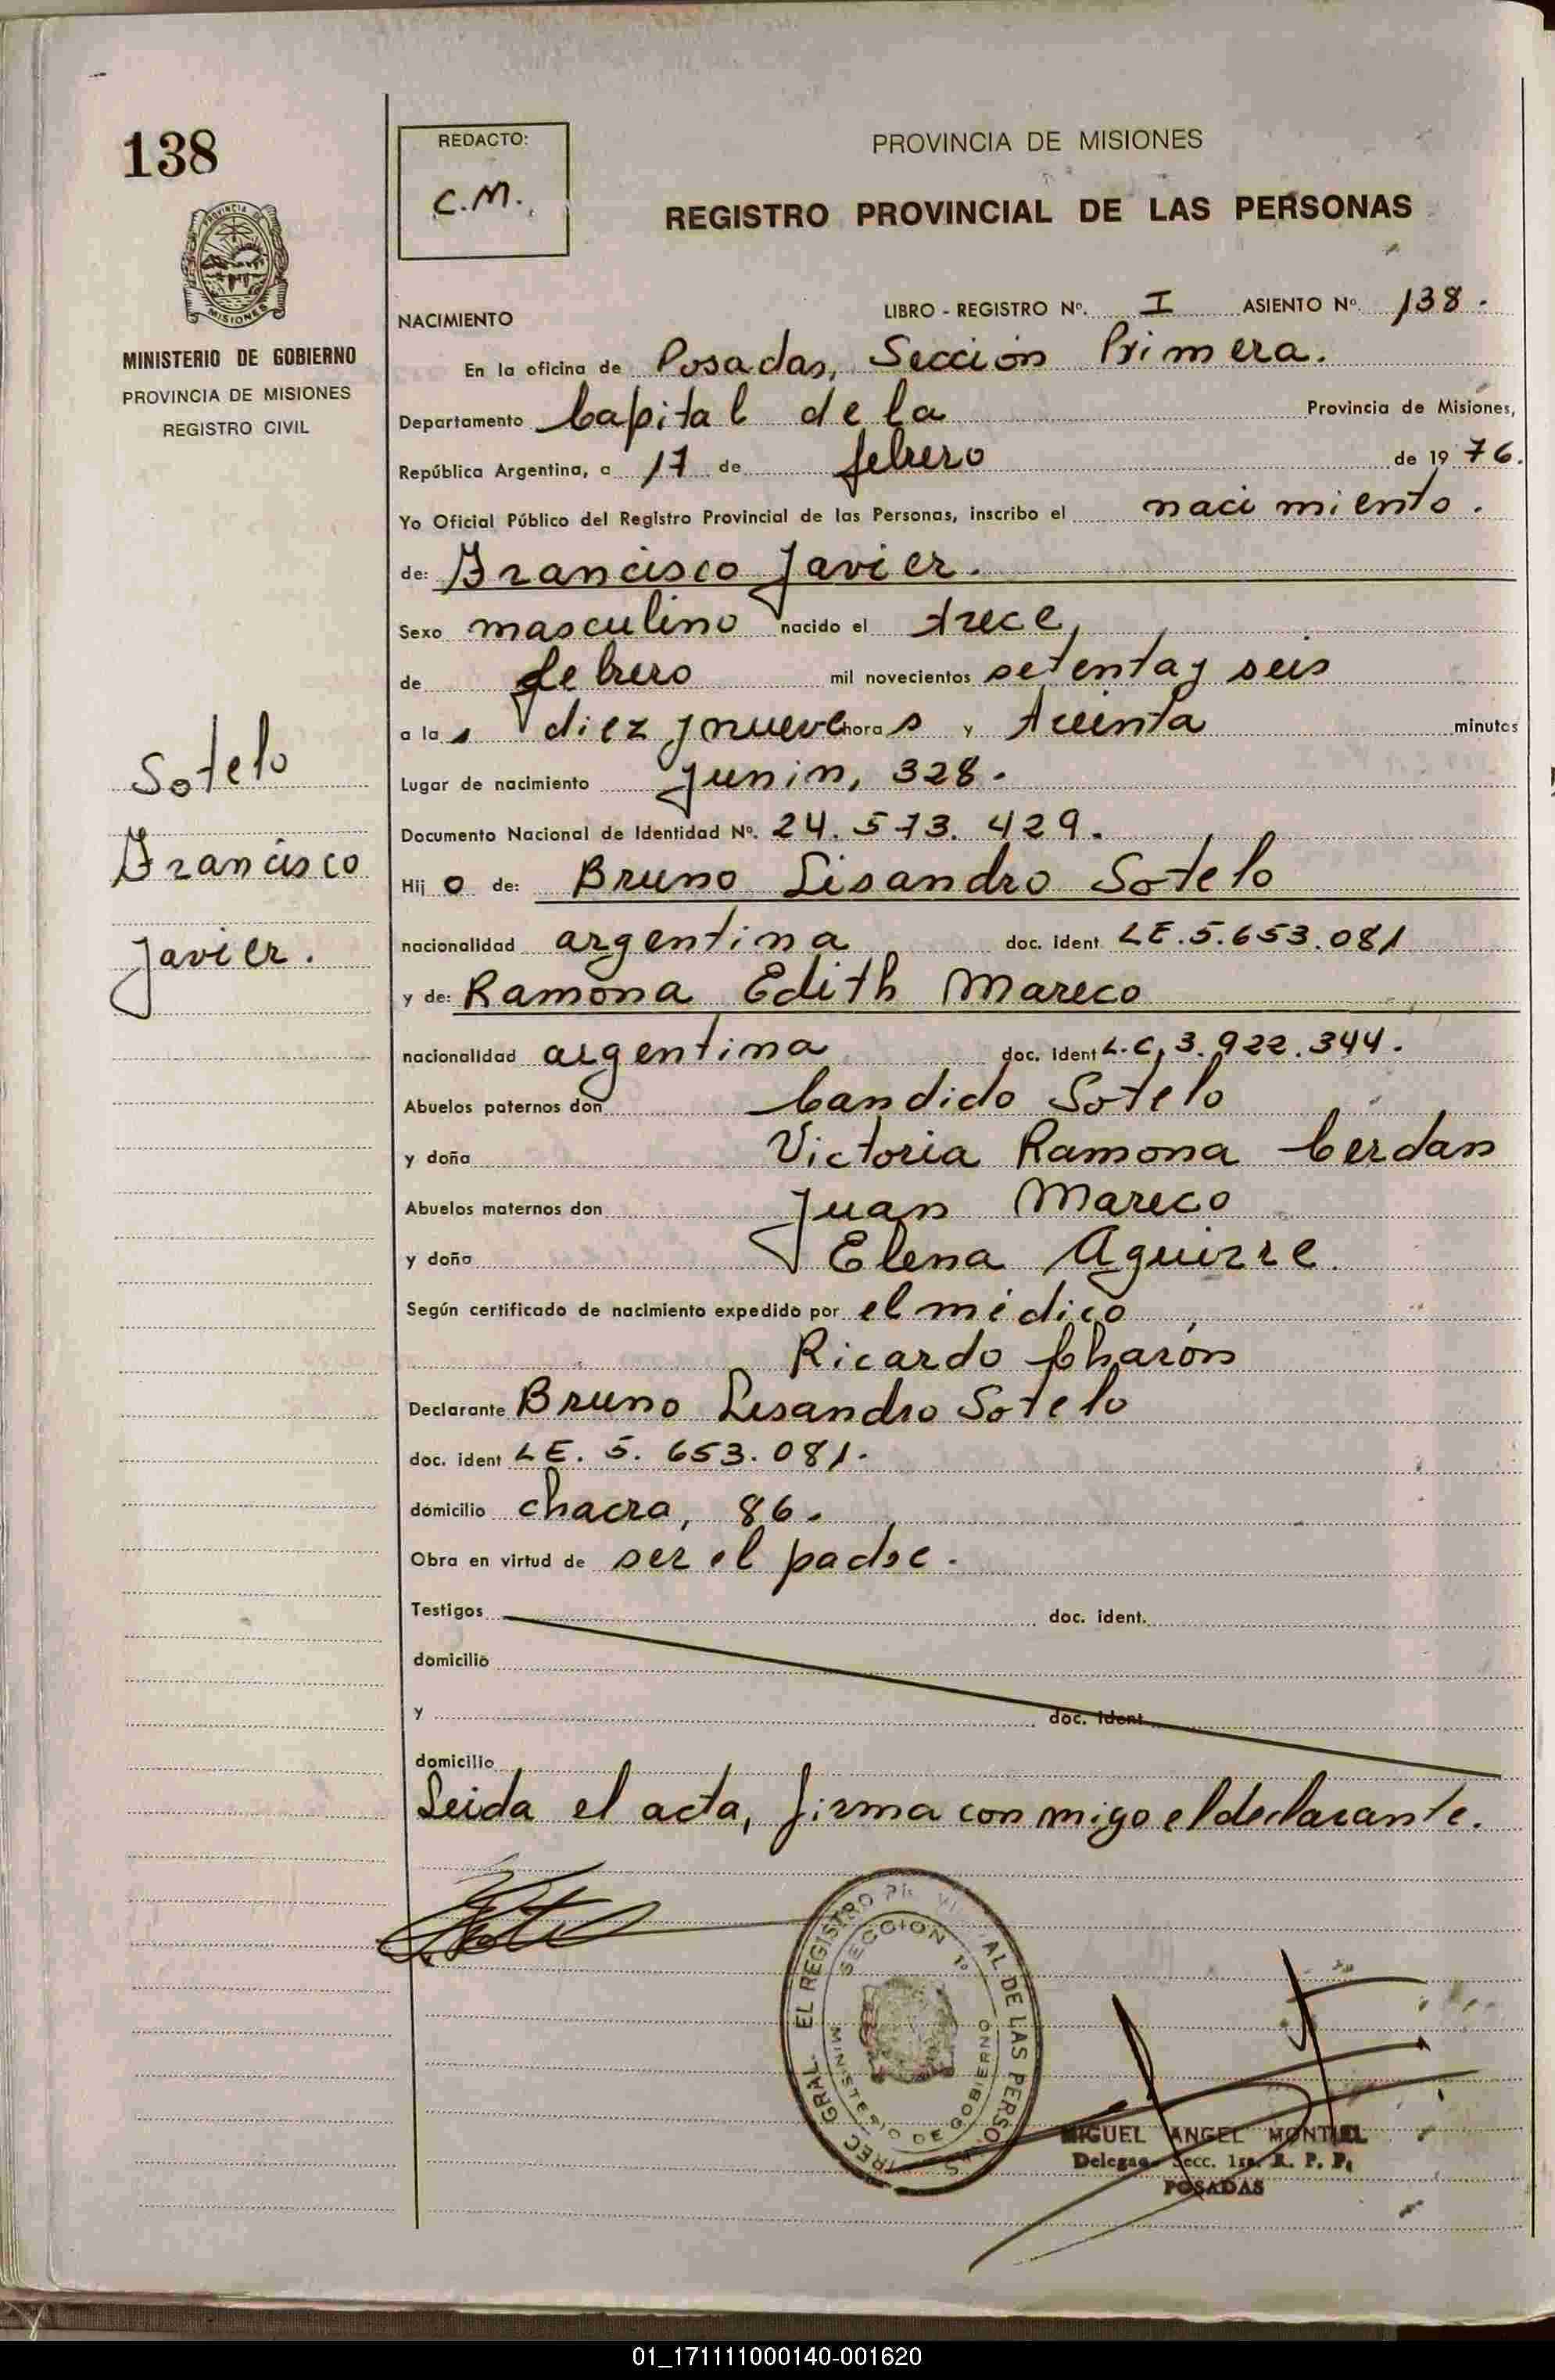 138
REDACTO:
C.M.
PROVINCIA DE MISIONES
REGISTRO PROVINCIAL DE LAS PERSONAS
MISIONES
MINISTERIO DE GOBIERNO
PROVINCIA DE MISIONES
REGISTRO CIVIL
NACIMIENTO LIBRO - REGISTRO Nº. I ASIENTO Nº. 138.
En la oficina de Posadas, Sección Primera.
Departamento Capital de la Provincia de Misiones,
República Argentina, a 17 de febrero de 1976.
Yo Oficial Público del Registro Provincial de las Personas, inscribo el nacimiento.
de: Francisco Javier.
Sexo masculino nacido el trece,
de febrero mil novecientos setenta y seis
a las diez y nueve horas y treinta minutos
Lugar de nacimiento Junin, 328.
Documento Nacional de Identidad Nº. 24.573.429.
Hijo de: Bruno Lisandro Sotelo
nacionalidad argentina doc. ident LE.5.653.081
y de: Ramona Edith Mareco
nacionalidad argentina doc. ident L.C. 3.922.344.
Abuelos paternos don Candido Sotelo
y doña Victoria Ramona Cerdan
Abuelos maternos don Juan Mareco
y doña Elena Aguirre.
Según certificado de nacimiento expedido por el médico
Ricardo Charón
Declarante Bruno Lisandro Sotelo
doc. ident LE. 5. 653.081.
domicilio chacra, 86.
Obra en virtud de ser el padre.
Testigos doc. ident.
domicilio
y doc. ident.
domicilio
Leida el acta, firma conmigo el declarante.
Sotelo
Francisco
Javier.
EL REGISTRO AL DE LAS PERSO
SECCION 1º
MINISTERIO DE GOBIERNO
MIGUEL ANGEL MONTIEL
Delegado Secc. 1ra. R. P. P.
POSADAS
01_171111000140-001620